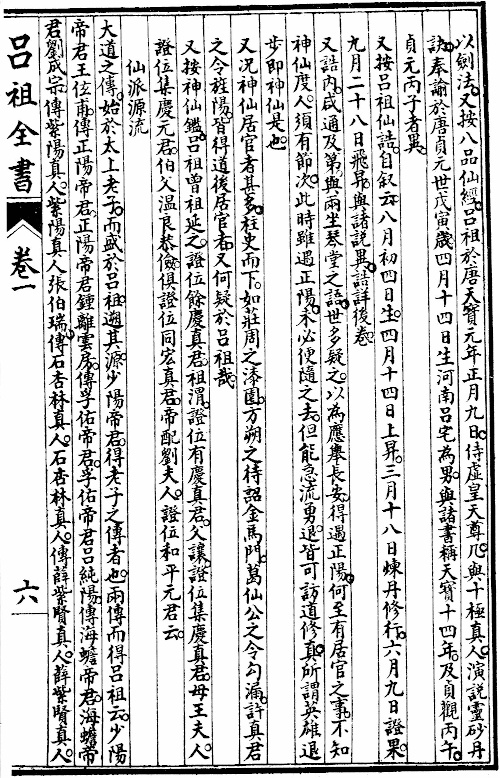 以劍法。又按八品仙經。呂祖於唐天寶元年正月九日。侍虛皇天尊几。與十極真人。演說靈砂丹
訣。奉謝於唐貞元世戊寅歲四月十四日。生河南呂宅為男。與諸書稱天寶十四年。及貞觀丙午。
貞元丙子者異。
又按呂祖仙誥。自叙云。八月初四日生。四月十四日上昇。三月十八日煉丹修行。六月九日證果。
九月二十八日飛昇。與諸說異。誥詳後卷。
又誥內。咸通及第。與兩坐琴堂之語。世多疑之。以為應舉長安。得遇正陽。何至有居官之事。不知
神仙度人。須有節次。此時雖遇正陽。未必便隨之去。但能急流勇退。皆可訪道修真。所謂英雄退
步即神仙是也。
又況神仙居官者甚多。柱史而下。如莊周之漆園。方朔之待詔金馬門。葛仙公之令勾漏。許真君
之令旌陽。皆得道後居官者。又何疑於呂祖哉。
又按神仙鑑。呂祖曾祖延之。證位餘慶真君。祖渭。證位有慶真君。父讓。證位集慶真君。母王夫人。
證位集慶元君。伯父溫良恭儉。俱證位同宏真君。帝配劉夫人。證位和平元君云。
仙派源流
大道之傳。始於太上老子。而盛於呂祖。遡其源。少陽帝君。得老子之傳者也。兩傳而得呂祖云。少陽
帝君王位甫。傳正陽帝君。正陽帝君鍾離雲房。傳孚佑帝君。孚佑帝君呂純陽。傳海蟾帝君。海蟾帝
君劉成宗。傳紫陽真人。紫陽真人張伯瑞。傳石杏林真人。石杏林真人。傳薛紫賢真人。薛紫賢真人。
呂祖全書
卷一
六